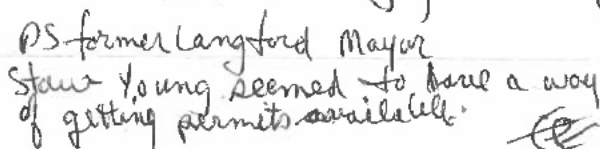 PS former Langford Mayor
Stew Young seemed to have a way
of getting permits available.